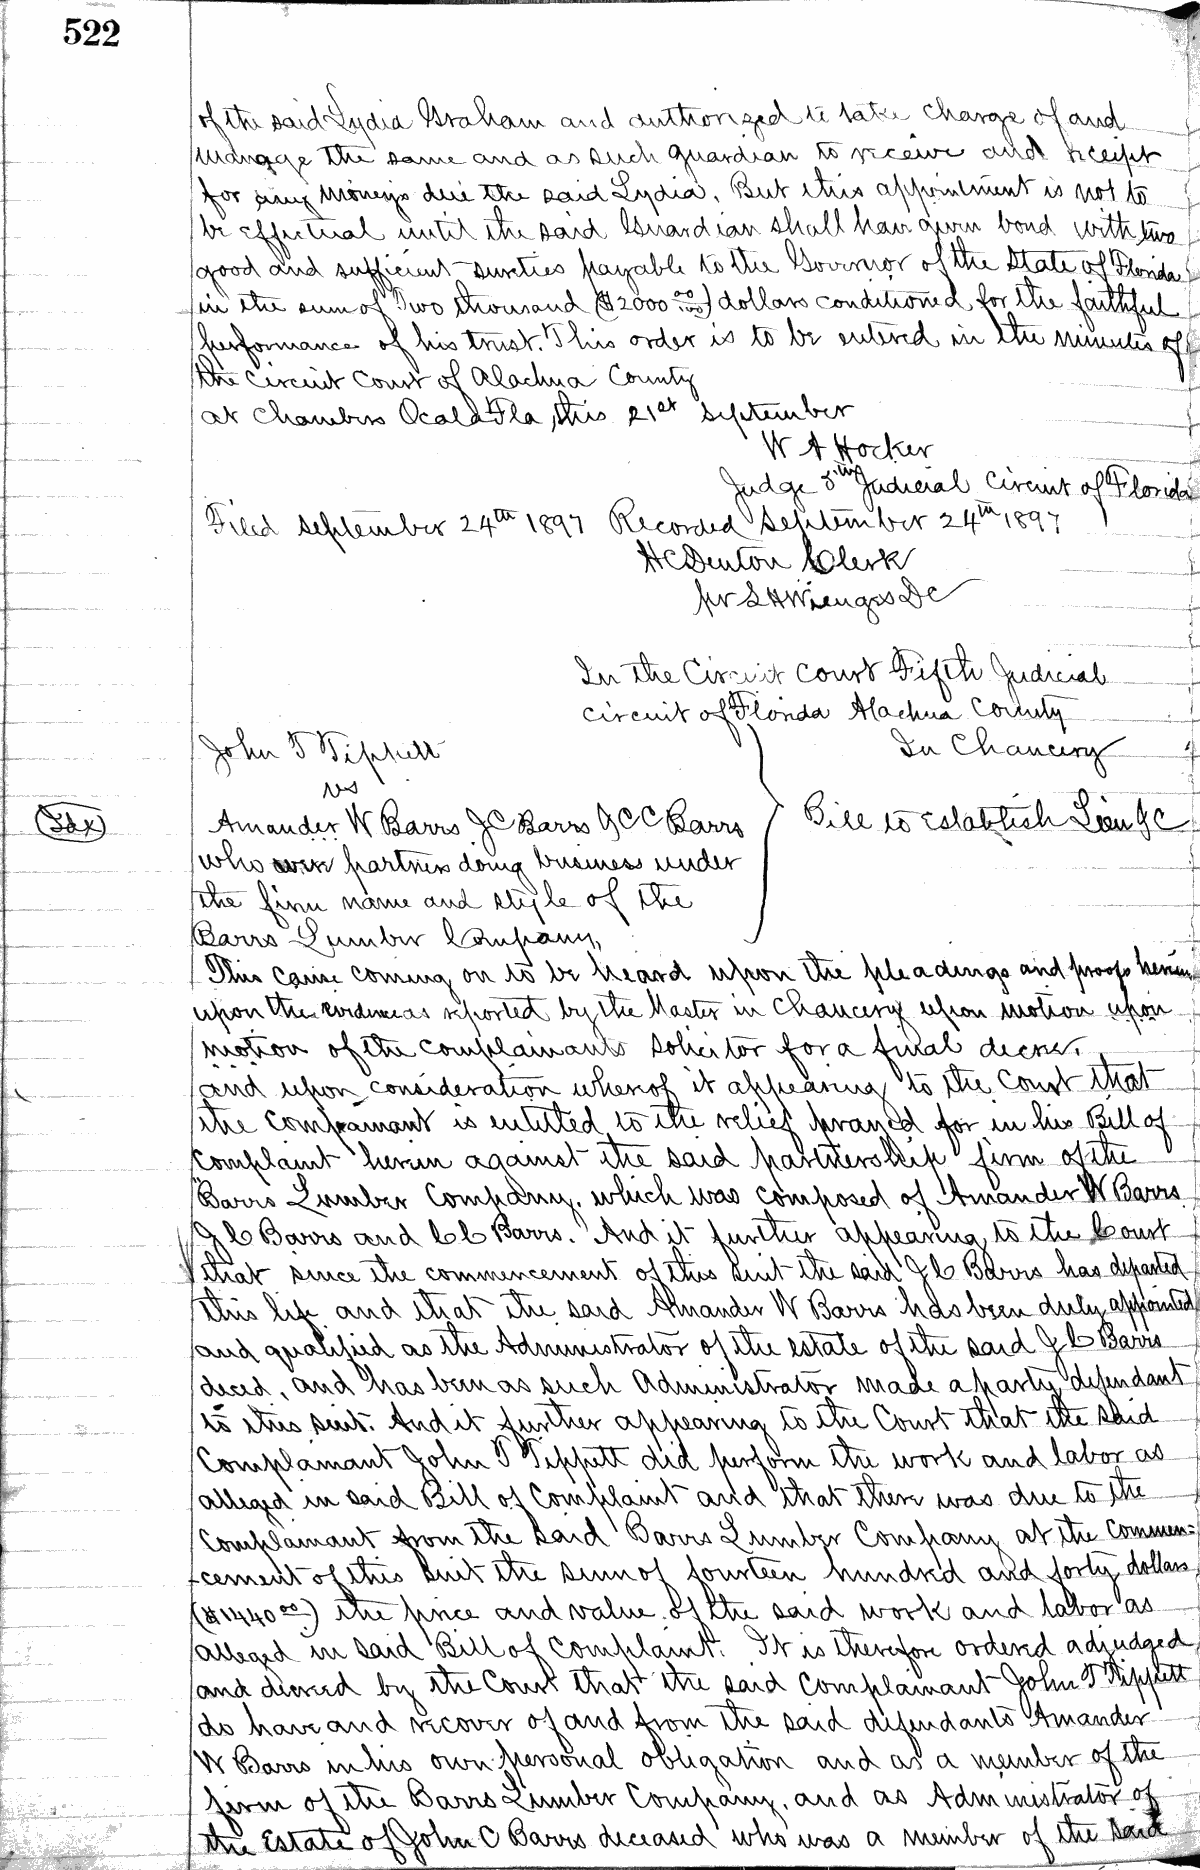 522
of the said Lydia Graham and authorized to take charge of and
manage the same and as such guardian to receive and receipt
for any moneys due the said Lydia. But this appointment is not to
be effectual until the said Guardian shall have given bond with two
good and sufficient sureties payable to the Governor of the State of Florida
in the sum of Two thousand ($2000 00/100) dollars conditioned for the faithful
performance of his trust. This order is to be entered in the minutes of
the Circuit Court of Alachua County
at Chambers Ocala Fla, this 21st September
W A Hocker
Judge 5th Judicial Circuit of Florida
Filed September 24th 1897 Recorded September 24th 1897
H C Denton Clerk
pr S H Wienges DC
In the Circuit Court Fifth Judicial
Circuit of Florida Alachua County
John T Tippett In Chancery
vs
Idx
Amander W Barrs J C Barrs & C C Barrs Bill to Establish Lien &C
who were partners doing business under
the firm name and style of the
Barrs Lumber Company,
This cause coming on to be heard upon the pleadings and proofs herein
upon the evidence as reported by the Master in Chancery upon motion upon
motion of the complainants solicitor for a final decree.
and upon consideration whereof it appearing to the Court that
the complainant is entitled to the relief prayed for in his Bill of
Complaint herein against the said partnership firm of the
Barrs Lumber Company. which was composed of Amander W Barrs
J C Barrs and C C Barrs. And it further appearing to the Court
that since the commencement of this suit the said J C Barrs has departed
this life and that the said Amander W Barrs has been duly appointed
and qualified as the Administrator of the estate of the said J C Barrs
deced, and has been as such Administrator made a party defendant
to this suit. And it further appearing to the Court that the said
Complamant John T Tippett did perform the work and labor as
alleged in said Bill of Complaint and that there was due to the
Complainant from the said Barrs Lumber Company at the Commen=
-cement of this suit the sum of fourteen hundred and forty dollars
($1440 00) the price and value of the said work and labor as
alleged in said Bill of Complaint. It is therefore ordered adjudged
and decreed by the Court that the said Complainant John T Tippett
do have and recover of and from the said defendants Amander
W Barrs in his own personal obligation and as a member of the
firm of the Barrs Lumber Company, and as Administrator of
the Estate of John C Barrs deceased who was a member of the said